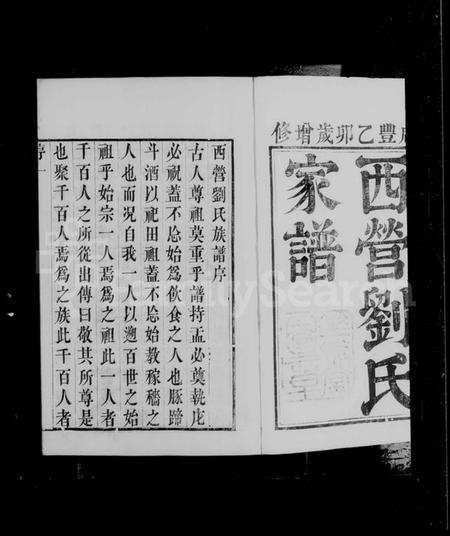 咸豐乙卯歲增修
西營劉氏
家譜
西營劉氏族譜序
古人尊祖莫重乎譜持盂必奠執庀
必祝蓋不忘始爲飲食之人也豚蹄
斗酒以祀田祖蓋不忘始教稼穡之
人也而况自我一人以遡百世之始
祖乎始宗一人焉爲之祖此一人者
千百人之所從出傳曰敬其所尊是
也聚千百人焉爲之族此千百人者
序一
FamilySearch